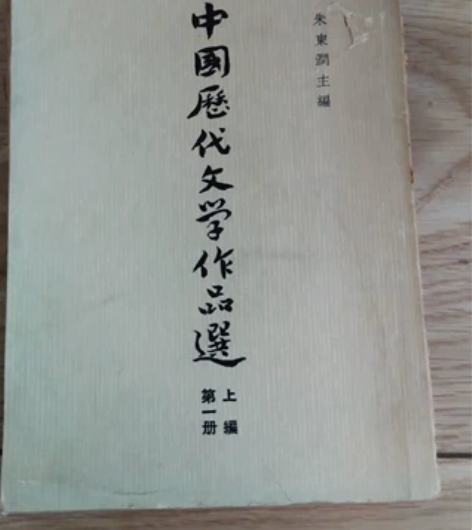 朱東潤主編
中國歷代文学作品選
上編
第一册